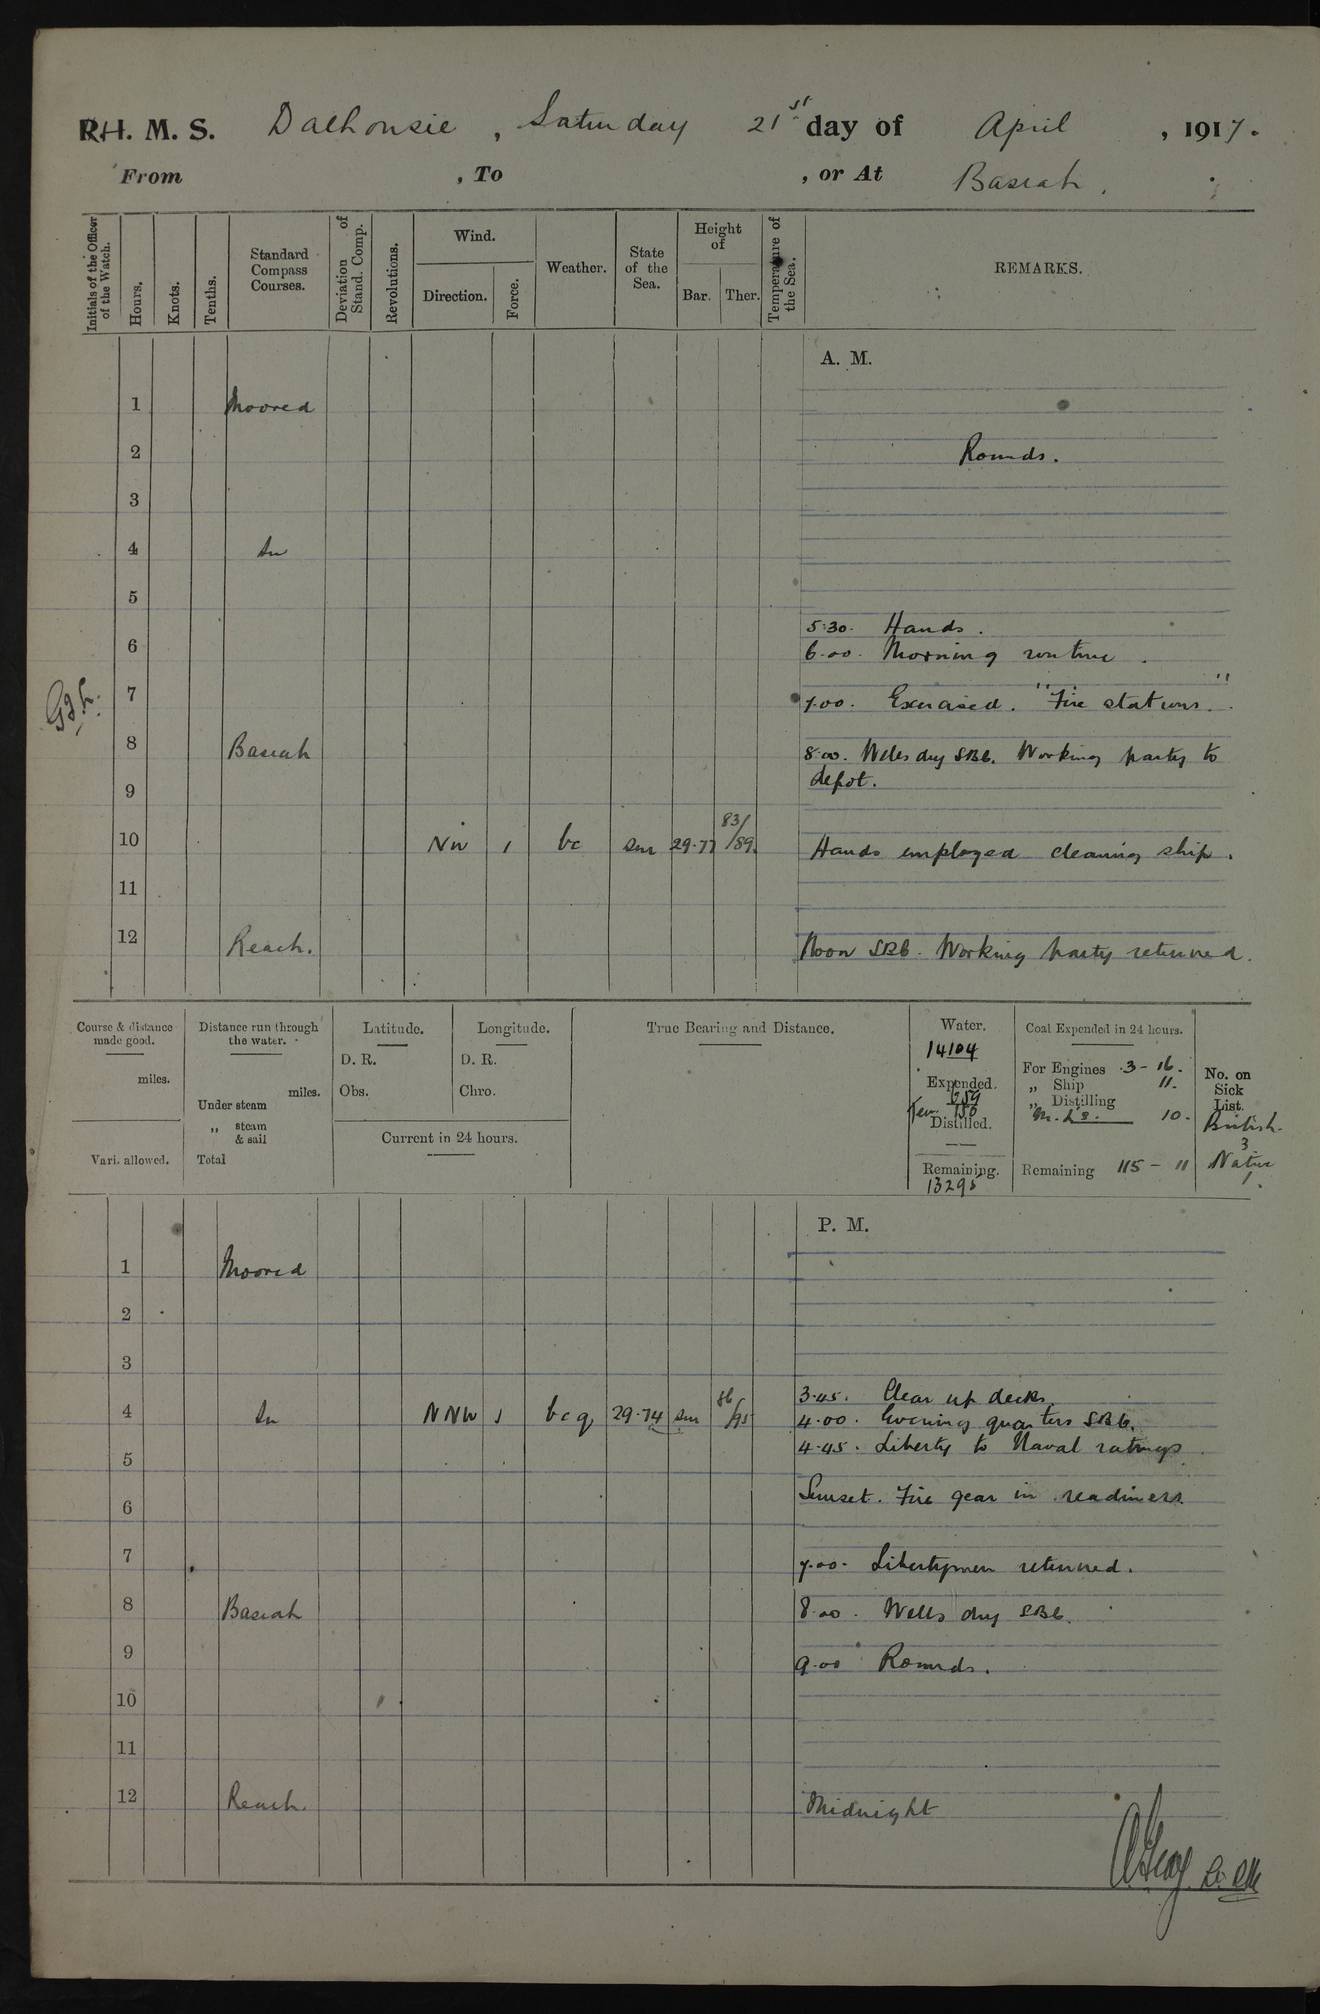 R.H. M. S. Dalhousie , Saturday 21st day of April , 1917.
From , To , or At Basrah .
Initials of the Officer of the Watch.
Hours.
Knots.
Tenths.
Standard Compass Courses.
Deviation of Stand. Comp.
Revolutions.
Wind.
Direction.
Force.
Weather.
State of the Sea.
Height of
Bar.
Ther.
Temperature of the Sea.
REMARKS.
A. M.
1 Moored
2 Rounds.
3
4 In
5
5.30. Hands.
6
6.00. Morning routine.
7 7.00. Exercised. "Fire stations."
8 Basrah 8.00. Wells dry SBC. Working party to
depot.
9
10 NW 1 bc sm 29.77 83/89. Hands employed cleaning ship.
11
12 Reach. Noon SBC. Working party returned.
Course & distance made good.
miles.
Vari. allowed.
Distance run through the water.
miles.
Under steam
„ steam & sail
Total
Latitude.
D. R.
Obs.
Longitude.
D. R.
Chro.
Current in 24 hours.
True Bearing and Distance.
Water.
14104
Expended.
659
150
Distilled.
Remaining.
13295
Coal Expended in 24 hours.
For Engines 3 - 16.
„ Ship 11.
„ Distilling
10.
Remaining 115 - 11
No. on Sick List.
British.
3
Native
1.
P. M.
1 Moored
2
3
3.45. Clear up decks
4 In NNW 1 bcq 29.74 sm 86/95 4.00. Evening quarters SBC.
4.45. Liberty to Naval ratings
5
Sunset. Fire gear in readiness
6
7 7.00. Libertymen returned.
8 Basrah 8.00. Wells dry SBC.
9 9.00 Rounds.
10
11
12 Reach. Midnight